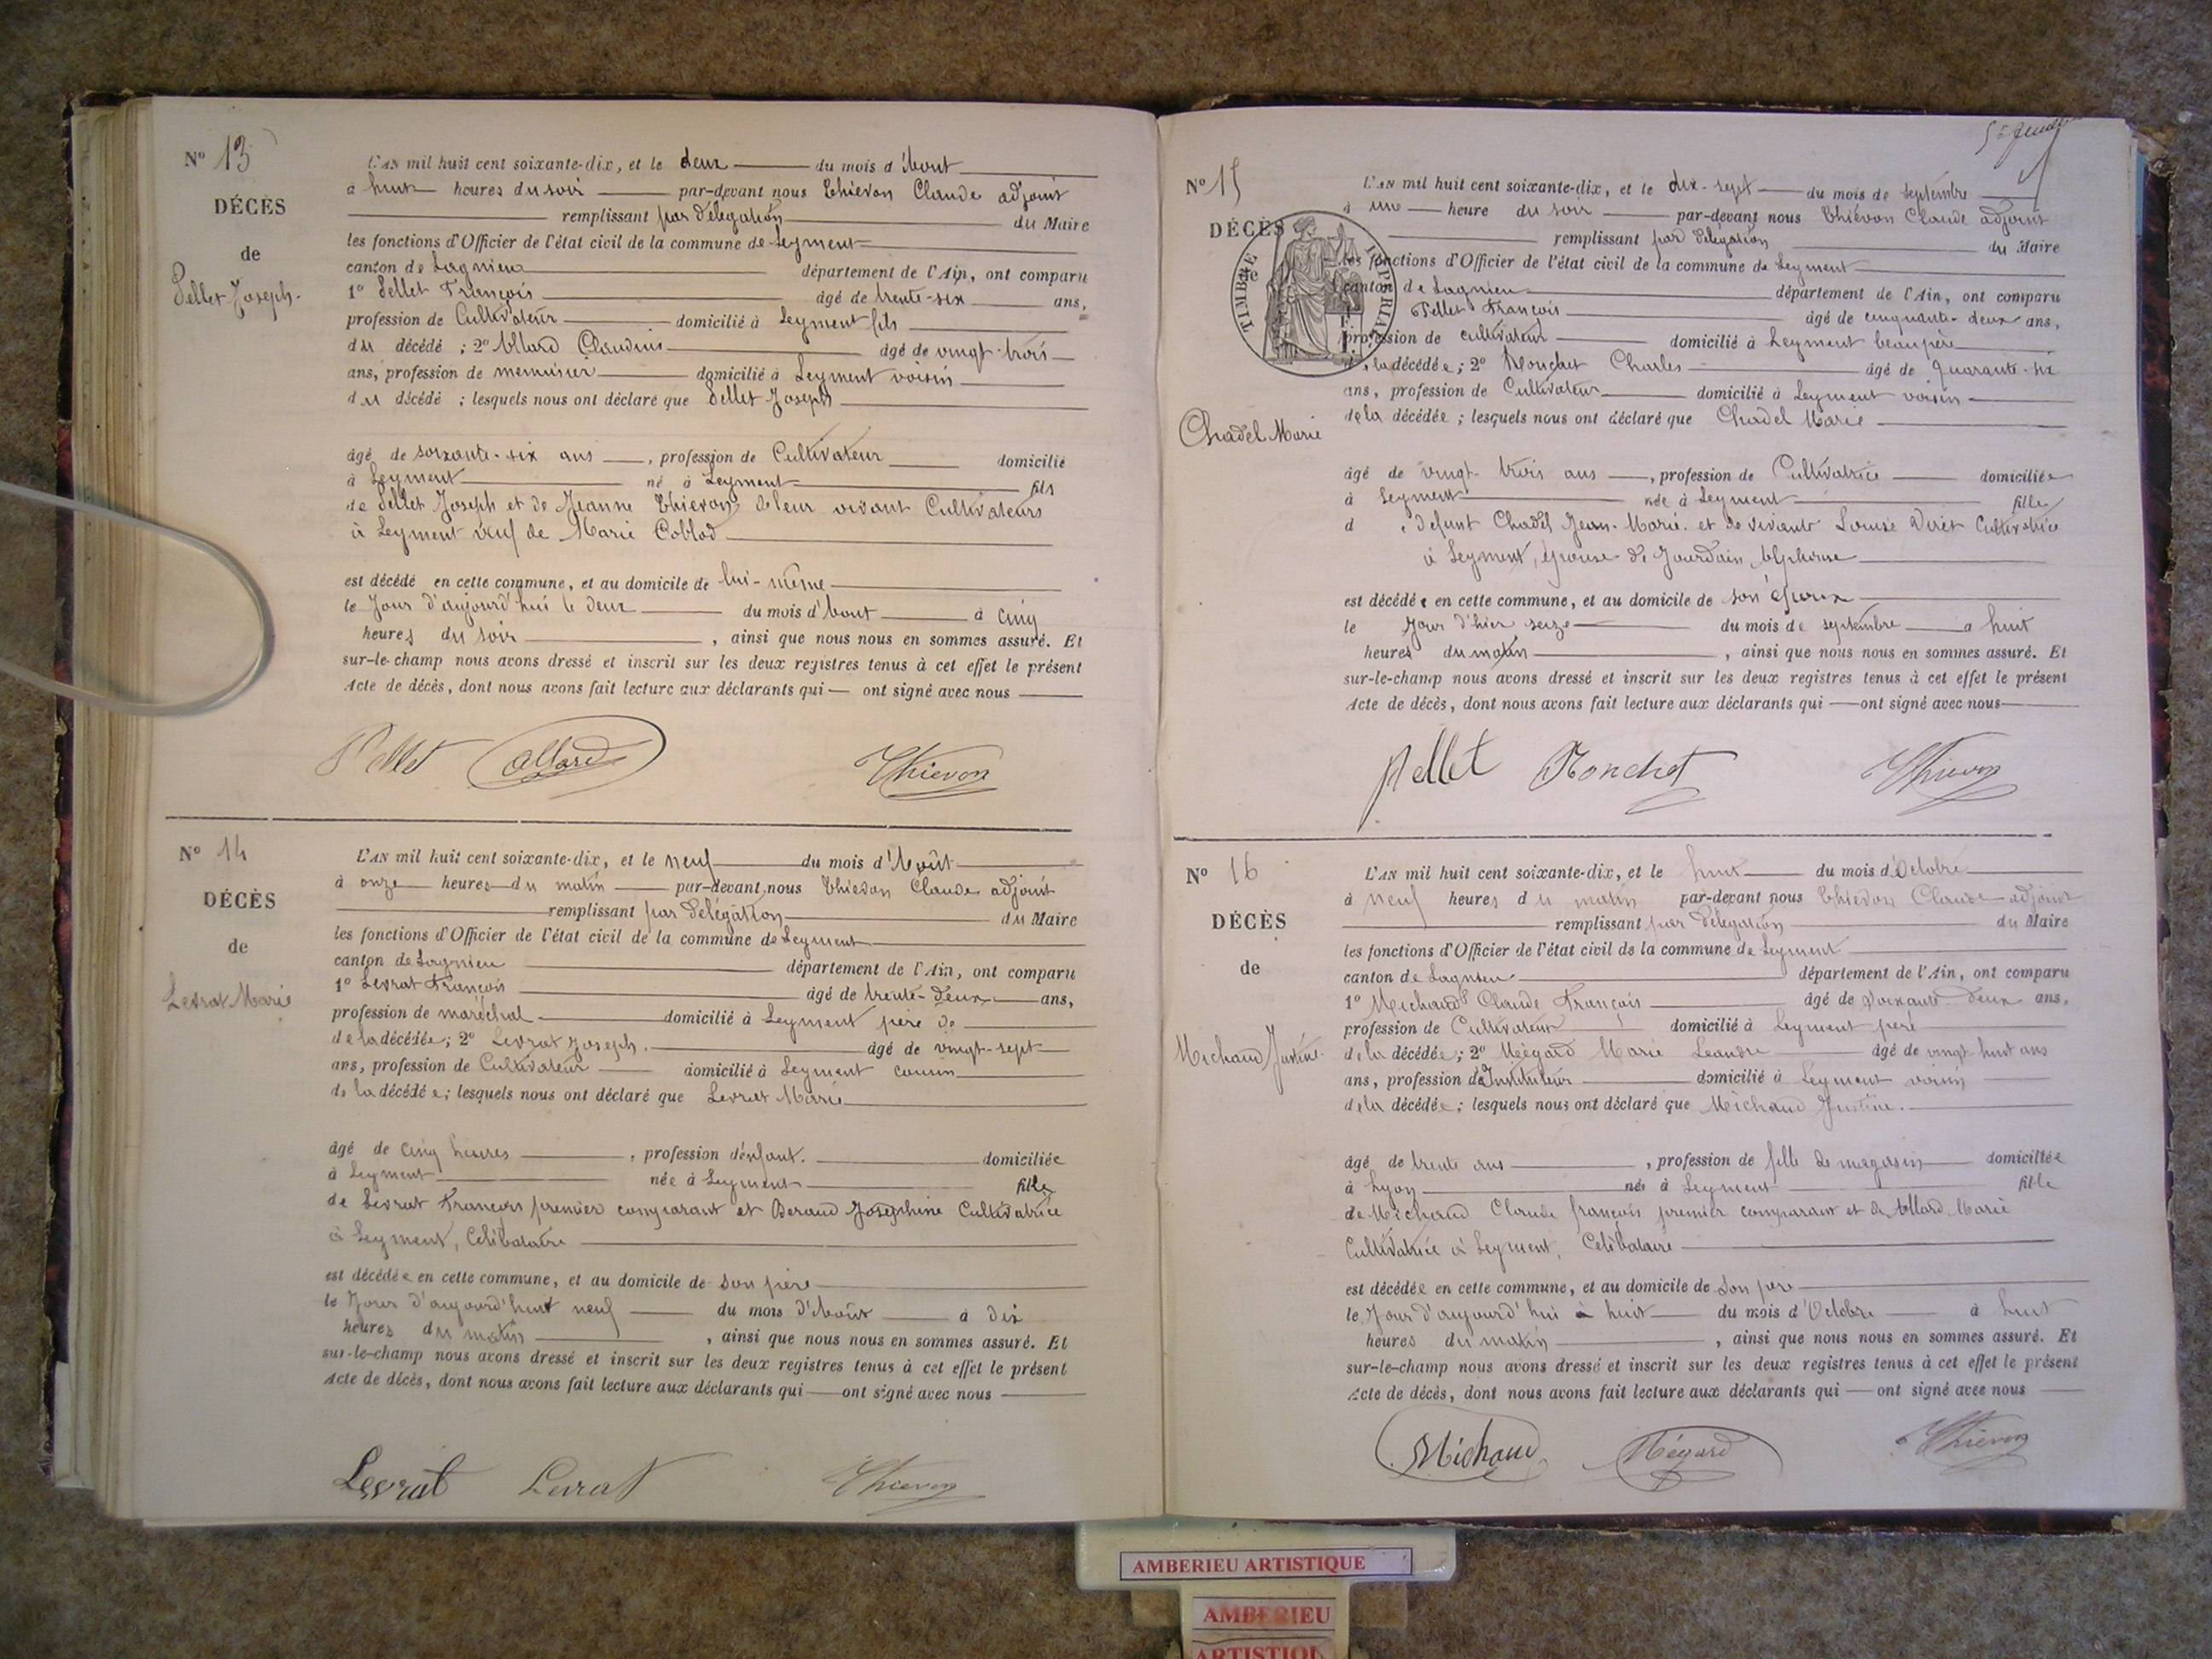 N° 13
DÉCÈS
de
Pellet Joseph.
L'AN mil huit cent soixante-dix, et le deux du mois d'Aout
à huit heures du soir par-devant nous Thievon Claude adjoint
remplissant par délégation du Maire
les fonctions d'Officier de l'état civil de la commune de Leyment
canton de Lagnieu département de l'Ain, ont comparu
1° Pellet François âgé de trente-six ans,
profession de Cultivateur domicilié à Leyment fils
du décédé ; 2° Allard Claudius âgé de vingt-trois
ans, profession de menuisier domicilié à Leyment voisin
du décédé ; lesquels nous ont déclaré que Pellet Joseph
âgé de soixante-six ans, profession de Cultivateur domicilié
à Leyment né à Leyment fils
de Pellet Joseph et de Jeanne Thievon de leur vivant Cultivateurs
à Leyment veuf de Marie Coblod
est décédé en cette commune, et au domicile de lui-même
le Jour d'aujourd'hui le deux du mois d'Aout à cinq
heures du soir, ainsi que nous nous en sommes assuré. Et
sur-le-champ nous avons dressé et inscrit sur les deux registres tenus à cet effet le présent
Acte de décès, dont nous avons fait lecture aux déclarants qui ont signé avec nous
Pellet Allard Thievon
N° 14
DÉCÈS
de
Levrat Marie
L'AN mil huit cent soixante-dix, et le neuf du mois d'Août
à onze heures du matin par-devant nous Thievon Claude adjoint
remplissant par délégation du Maire
les fonctions d'Officier de l'état civil de la commune de Leyment
canton de Lagnieu département de l'Ain, ont comparu
1° Levrat François âgé de trente-deux ans,
profession de maréchal domicilié à Leyment père de
de la décédée; 2° Levrat Joseph. âgé de vingt-sept
ans, profession de Cultivateur domicilié à Leyment cousin
de la décédée; lesquels nous ont déclaré que Levrat Marie
âgé de cinq heures, profession d'enfant. domiciliée
à Leyment née à Leyment fille
de Levrat François premier comparant et Beraud Joséphine Cultivatrice
à Leyment, Célibataire
est décédée en cette commune, et au domicile de son père
le Jour d'aujourd'hui neuf du mois d'Août à dix
heures du matin, ainsi que nous nous en sommes assuré. Et
sur-le-champ nous avons dressé et inscrit sur les deux registres tenus à cet effet le présent
Acte de décès, dont nous avons fait lecture aux déclarants qui ont signé avec nous
Levrat Levrat Thievon
N° 15
DÉCÈS
de
TIMBRE IMPERIAL
Chadel Marie
L'AN mil huit cent soixante-dix, et le dix-sept du mois de septembre
à une heure du soir par-devant nous Thiévon Claude adjoint
remplissant par délégation du Maire
les fonctions d'Officier de l'état civil de la commune de Leyment
canton de Lagnieu département de l'Ain, ont comparu
Pellet François âgé de cinquante-deux ans,
profession de cultivateur domicilié à Leyment beaupère
de la décédée; 2° Monchet Charles âgé de quarante-six
ans, profession de Cultivateur domicilié à Leyment voisin
de la décédée; lesquels nous ont déclaré que Chadel Marie
âgé de vingt-trois ans, profession de Cultivatrice domiciliée
à Leyment née à Leyment fille
de défunt Chadel Jean-Marie et de vivante Louise Viret Cultivatrice
à Leyment, épouse de Jourdain Alphonse
est décédée en cette commune, et au domicile de son époux
le Jour d'hier seize du mois de septembre à huit
heures du matin, ainsi que nous nous en sommes assuré. Et
sur-le-champ nous avons dressé et inscrit sur les deux registres tenus à cet effet le présent
Acte de décès, dont nous avons fait lecture aux déclarants qui ont signé avec nous
Pellet Monchet Thievon
N° 16
DÉCÈS
de
Michaud Justine
L'AN mil huit cent soixante-dix, et le huit du mois d'Octobre
à neuf heures du matin par-devant nous Thievon Claude adjoint
remplissant par délégation du Maire
les fonctions d'Officier de l'état civil de la commune de Leyment
canton de Lagnieu département de l'Ain, ont comparu
1° Michaud Claude François âgé de soixante-deux ans,
profession de Cultivateur domicilié à Leyment père
de la décédée; 2° Mégard Marie Leandre âgé de vingt-huit ans
ans, profession d'Instituteur domicilié à Leyment voisin
de la décédée; lesquels nous ont déclaré que Michaud Justine.
âgé de trente ans, profession de fille de magasin domiciliée
à Lyon née à Leyment fille
de Michaud Claude françois premier comparant et de Allard Marie
Cultivatrice à Leyment, Célibataire
est décédée en cette commune, et au domicile de son père
le Jour d'aujourd'hui huit du mois d'Octobre à huit
heures du matin, ainsi que nous nous en sommes assuré. Et
sur-le-champ nous avons dressé et inscrit sur les deux registres tenus à cet effet le présent
Acte de décès, dont nous avons fait lecture aux déclarants qui ont signé avec nous
Michaud Mégard Thievon
AMBERIEU ARTISTIQUE
AMBERIEU